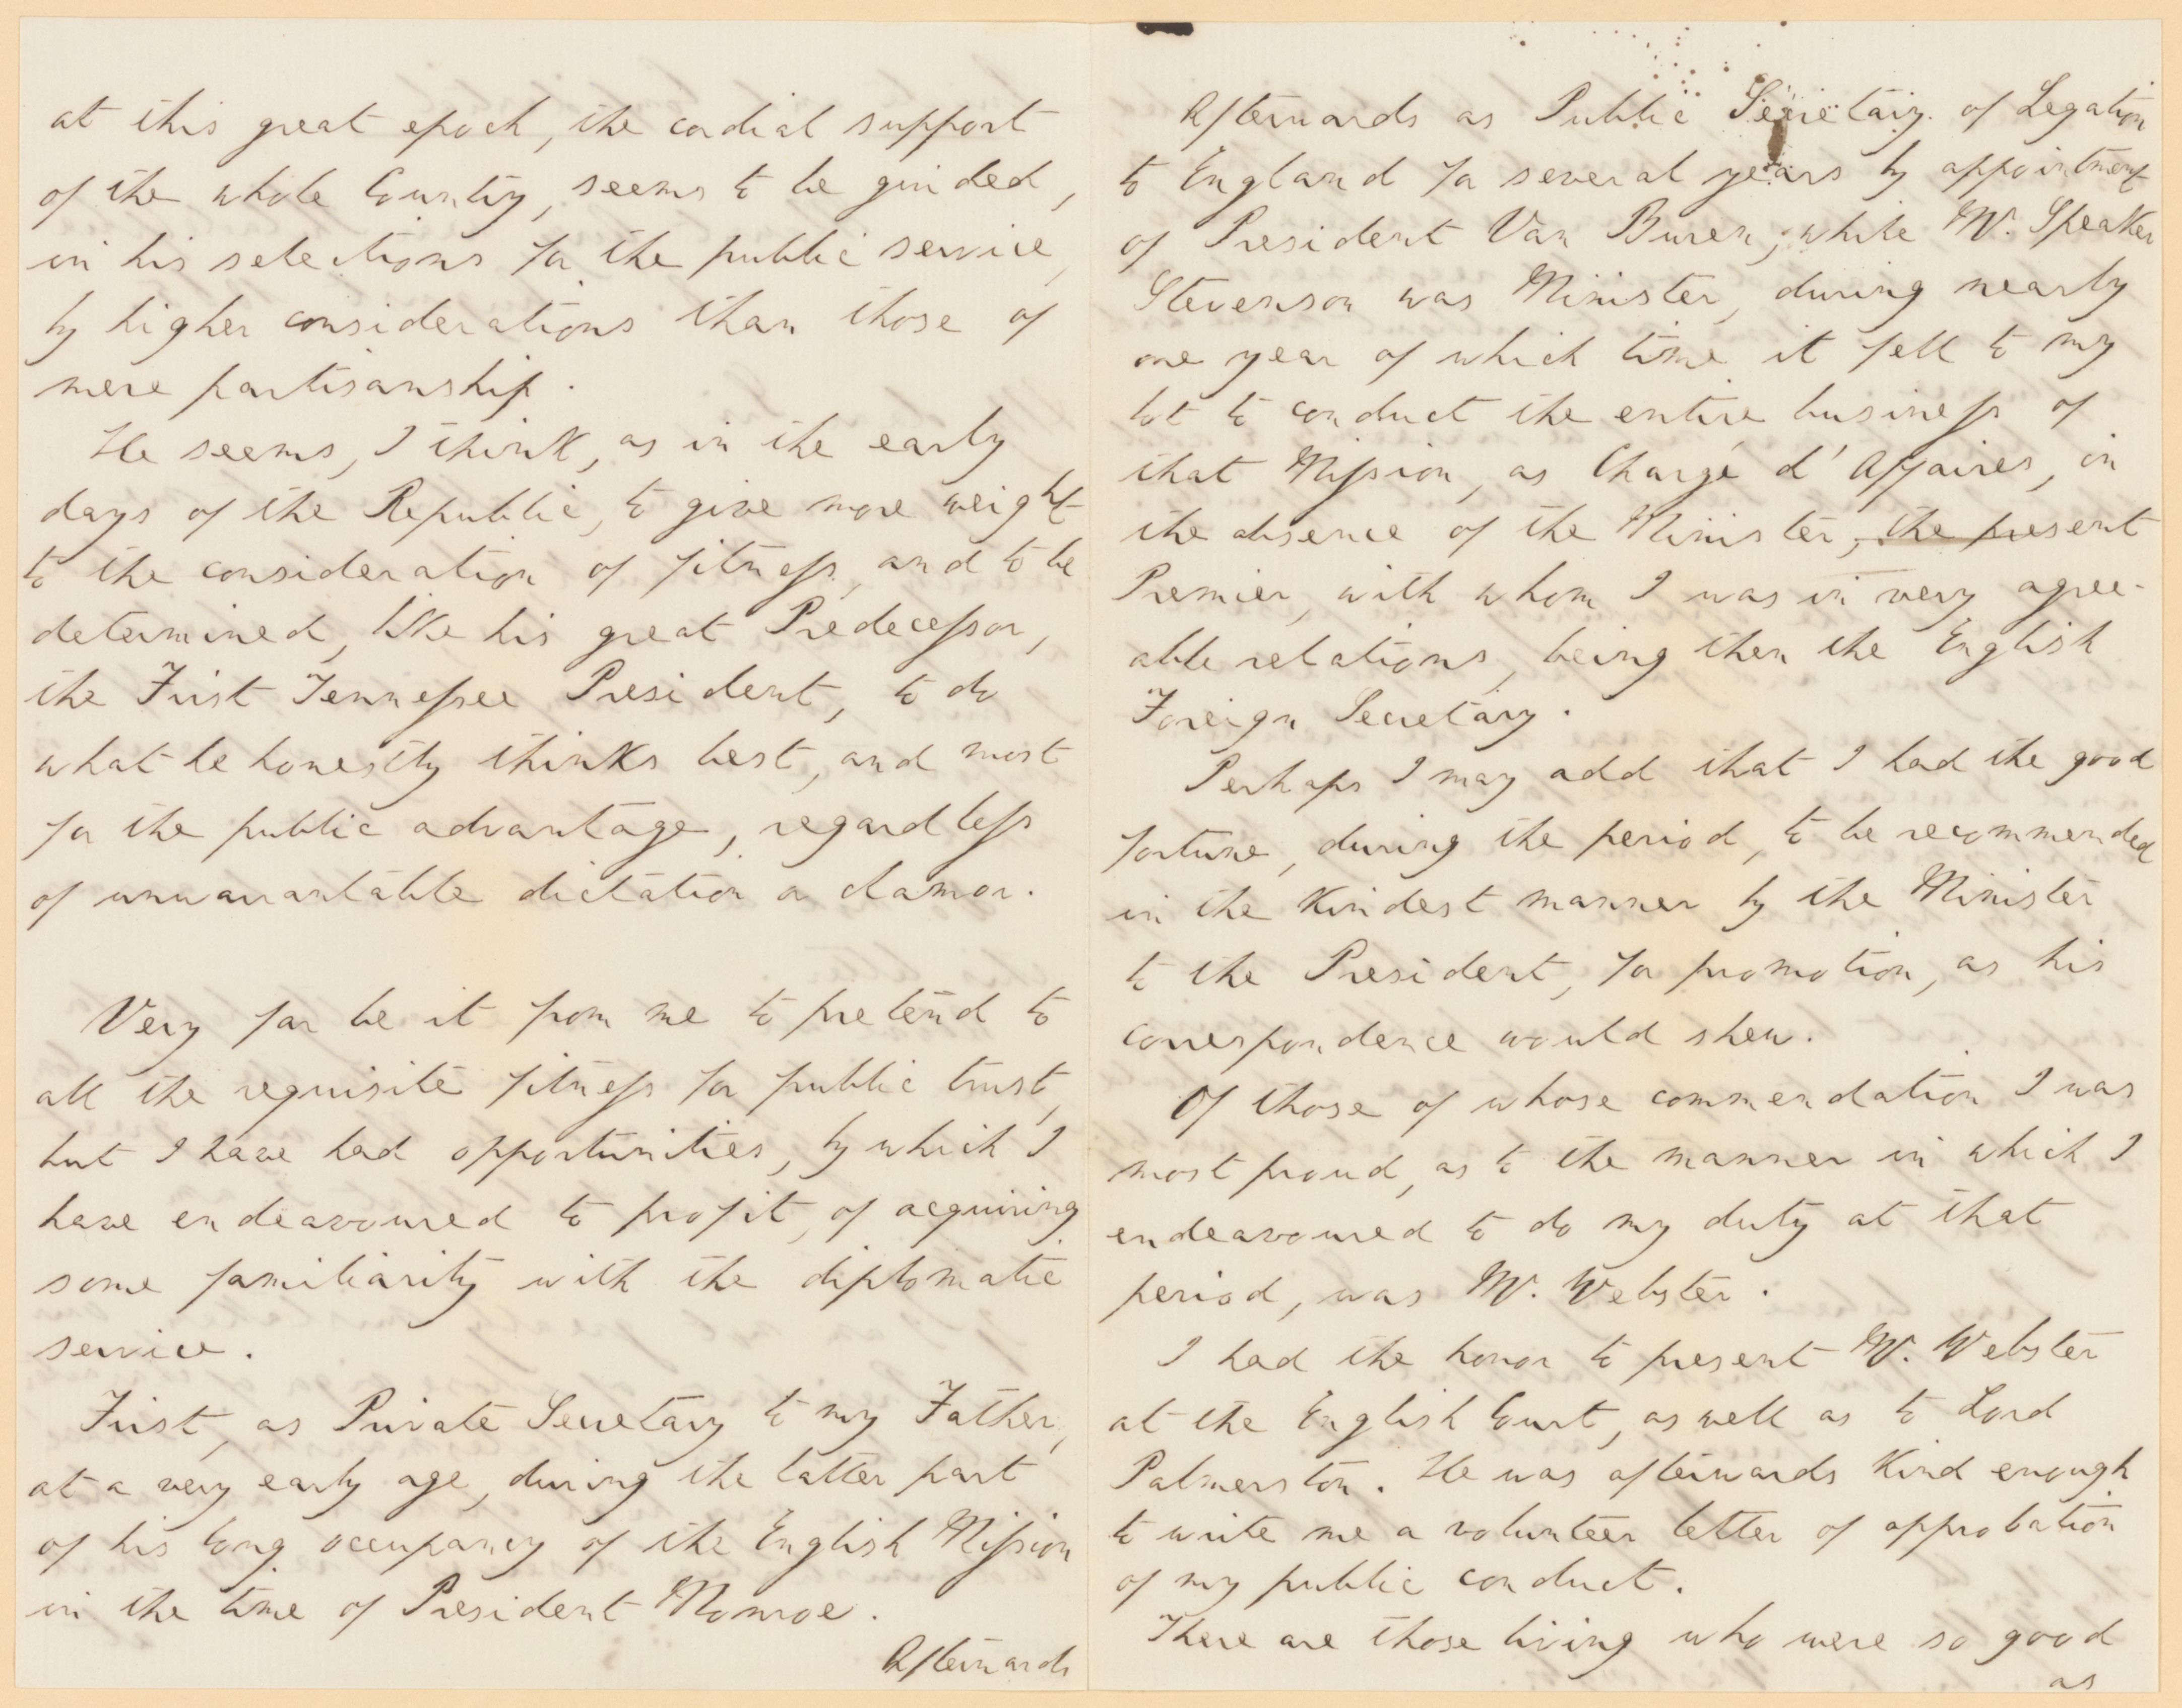 at this great epoch, the cordial support
of the whole Country, seems to be guided,
in his selections for the public service,
by higher considerations than those of
mere partisanship.
He seems, I think, as in the early
days of the Republic, to give more weight
to the consideration of fitness, and to be
determined, like his great Predecessor,
the First Tennessee President, to do
what he honestly thinks best, and most
for the public advantage, regardless
of unwarrantable dictation or clamor.
Very far be it from me to pretend to
all the requisite fitness for public trust,
but I have had opportunities, by which I
have endeavoured to profit, of acquiring
some familiarity with the diplomatic
service.
First, as Private Secretary to my Father,
at a very early age, during the latter part
of his long occupancy of the English Mission
in the time of President Monroe.
Afterwards
Afterwards as Public Secretary of Legation
to England for several years by appointment
of President Van Buren, while Mr. Speaker
Stevenson was Minister, during nearly
one year of which time it fell to my
lot to conduct the entire business of
that Mission, as Chargé d'Affaires, in
the absence of the Minister, the present
Premier, with whom I was in very agree-
able relations, being then the English
Foreign Secretary.
Perhaps I may add that I had the good
fortune, during the period, to be recommended
in the kindest manner by the Minister
to the President, for promotion, as his
correspondence would shew.
Of those of whose commendation I was
most proud, as to the manner in which I
endeavoured to do my duty at that
period, was Mr. Webster.
I had the honor to present Mr. Webster
at the English Court, as well as to Lord
Palmerston. He was afterwards kind enough
to write me a volunteer letter of approbation
of my public conduct.
There are those living who were so good
as